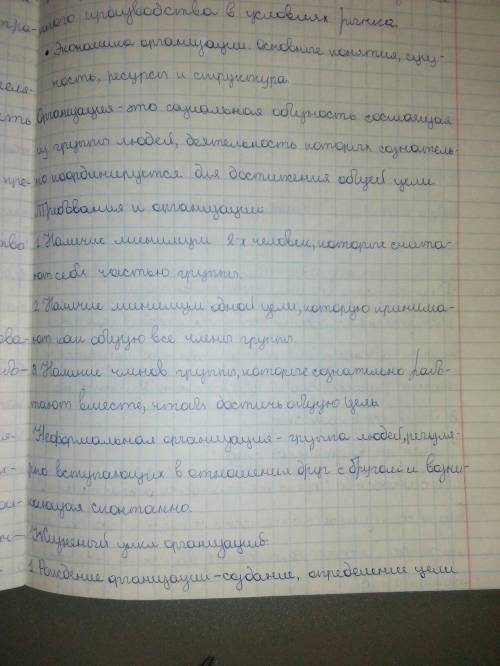 тра- ного производства в условиях рынка.
• Экономика организации. основные понятия, сущ-
ность, ресурсы и структура
Организация - это социальная общность состоящая
из группы людей, деятельность которых сознатель-
но координируется для достижения общей цели
Требования и организации:
1. Наличие минимум 2-х человек, которые счита-
ют себя частью группы.
2. Наличие минимум одной цели, которую принима-
ют как общую все члены группы.
3. Наличие членов группы, которые сознательно рабо-
тают вместе, чтобы достичь общую цель
Неформальная организация - группа людей, регуля-
рно вступающих в отношения друг с другом и возни-
кающая спонтанно.
Жизненый цикл организаций:
1. Рождение организации - создание, определение цели